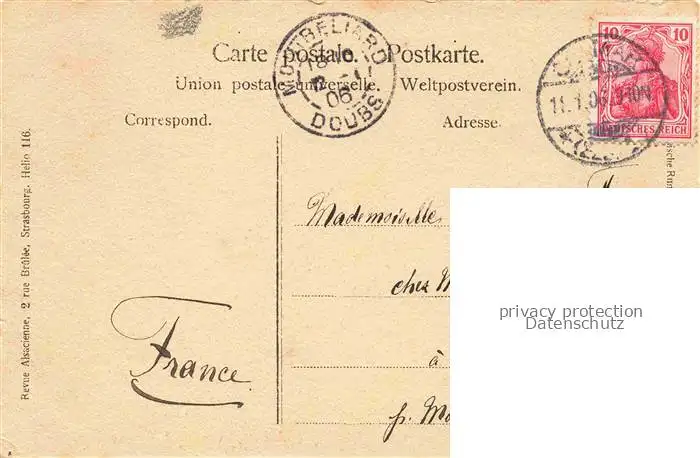 Carte postale. Postkarte.
Union postale universelle. Weltpostverein.
Correspond. Adresse.
MONTBELIARD
DOUBS
06
10 10
DEUTSCHES REICH
COLMAR
11.1.06.
Mademoiselle
chez M
à
p. Mo
France
Revue Alsacienne, 2 rue Brûlée, Strasbourg. Helio 116.
privacy protection
Datenschutz